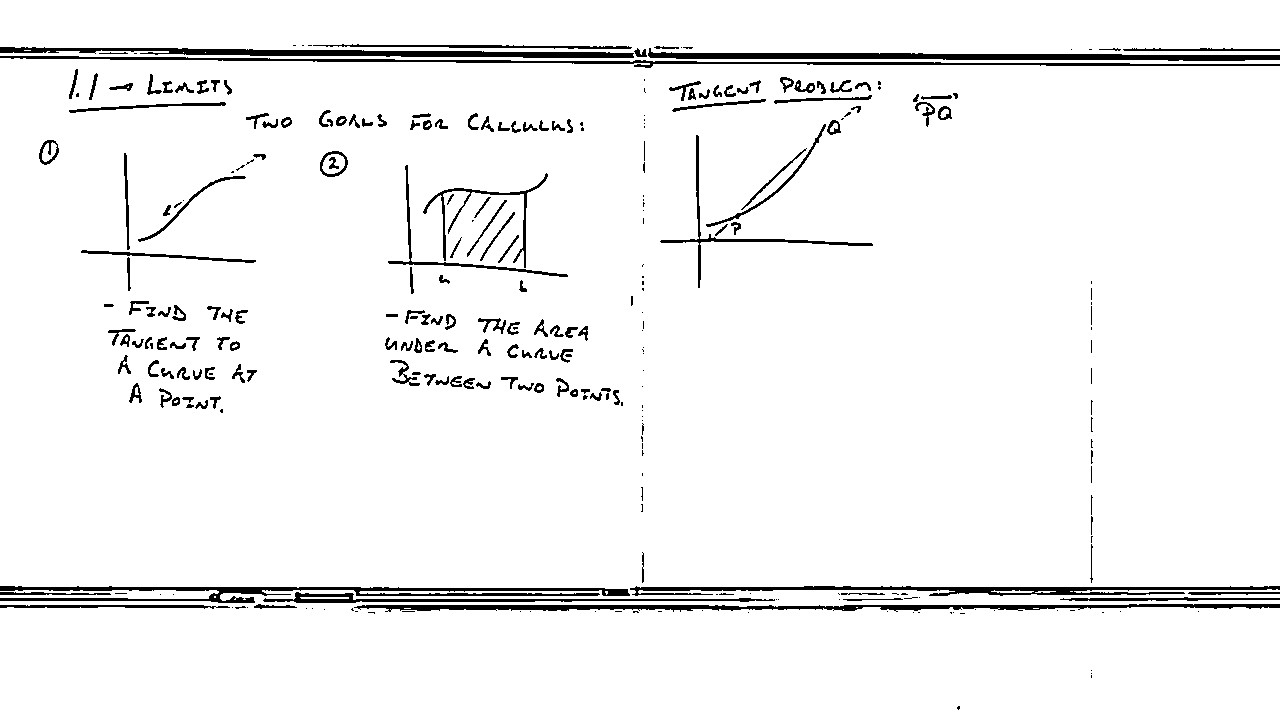 1.1 → LIMITS
TWO GOALS FOR CALCULUS:
①
②
a b
- FIND THE
TANGENT TO
A CURVE AT
A POINT.
- FIND THE AREA
UNDER A CURVE
BETWEEN TWO POINTS.
TANGENT PROBLEM:
PQ
Q
P